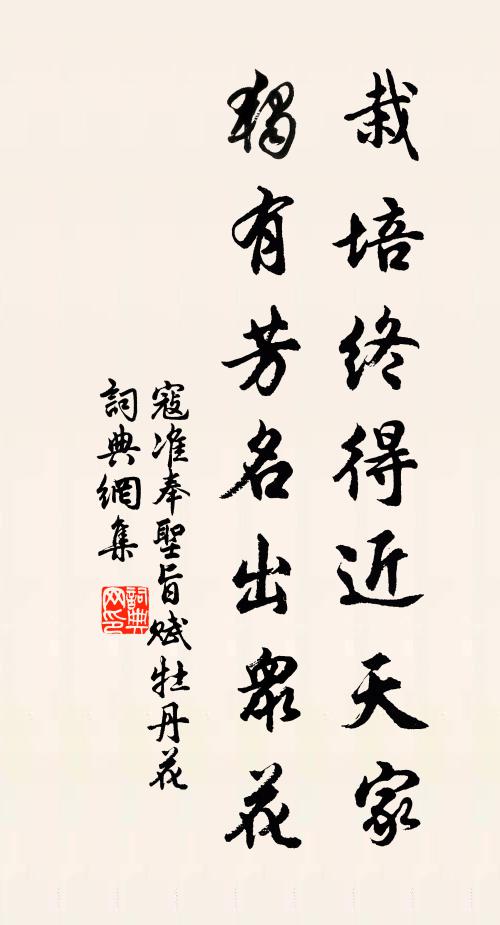 栽培終得近天家
獨有芳名出眾花
寇准奉聖旨賦牡丹花
詞典網集
詞典网印